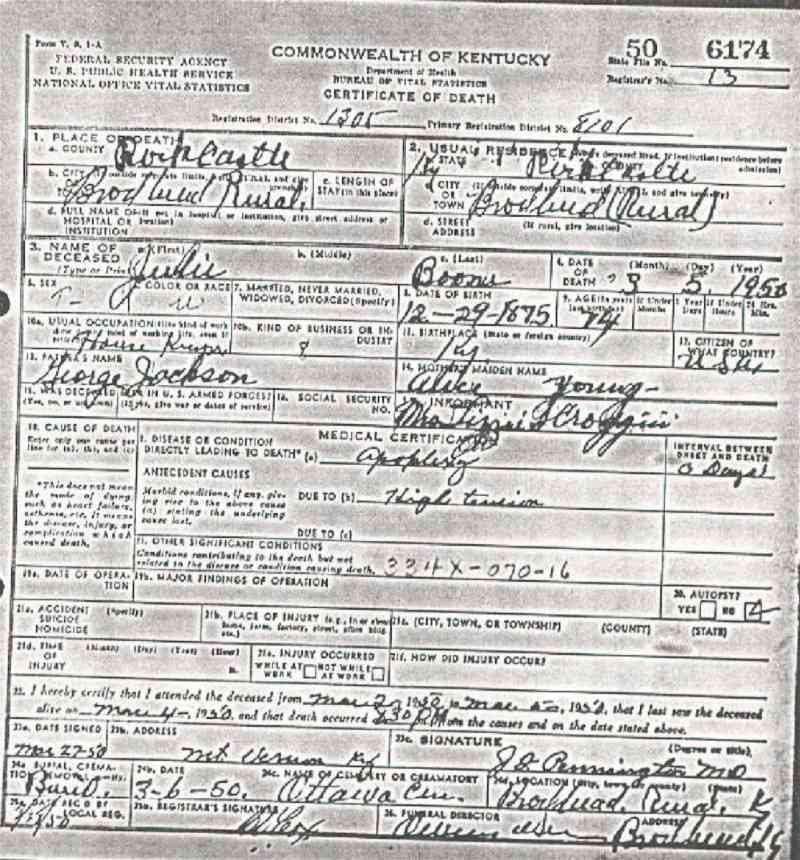 Form V. S. 1-A
FEDERAL SECURITY AGENCY
U. S. PUBLIC HEALTH SERVICE
NATIONAL OFFICE VITAL STATISTICS
COMMONWEALTH OF KENTUCKY
Department of Health
BUREAU OF VITAL STATISTICS
CERTIFICATE OF DEATH
State File No. 50 6174
Registrar's No. 13
Registration District No. 1305 Primary Registration District No. 8101
1. PLACE OF DEATH
a. COUNTY Rockcastle
2. USUAL RESIDENCE (Where deceased lived. If institution: residence before admission)
a. STATE Ky COUNTY Rockcastle
b. CITY Brodhead Rural.
c. LENGTH OF STAY (in this place)
d. CITY OR TOWN Brodhead (Rural)
d. FULL NAME OF (If not in hospital or institution, give street address or location) HOSPITAL OR INSTITUTION
d. STREET ADDRESS (If rural, give location)
3. NAME OF DECEASED (Type or Print)
a. (First) Julie
b. (Middle)
c. (Last) Boone
4. DATE OF DEATH (Month) (Day) (Year) 3 5. 1950
5. SEX F
6. COLOR OR RACE W
7. MARRIED, NEVER MARRIED, WIDOWED, DIVORCED (Specify)
8. DATE OF BIRTH 12-29-1875
9. AGE (In years last birthday) 74
If Under 1 Year Months Days
If Under 24 Hrs. Hours Min.
10a. USUAL OCCUPATION (Give kind of work done during most of working life, even if retired) House Keeper
10b. KIND OF BUSINESS OR INDUSTRY
11. BIRTHPLACE (State or foreign country) Ky.
12. CITIZEN OF WHAT COUNTRY? USA
13. FATHER'S NAME George Jackson
14. MOTHER'S MAIDEN NAME Alice Young
15. WAS DECEASED EVER IN U. S. ARMED FORCES? (Yes, no, or unknown) (If yes, give war or dates of service)
16. SOCIAL SECURITY NO.
17. INFORMANT Mrs
18. CAUSE OF DEATH
Enter only one cause per line for (a), (b), and (c)
MEDICAL CERTIFICATION
I. DISEASE OR CONDITION DIRECTLY LEADING TO DEATH* (a) Apoplexy
INTERVAL BETWEEN ONSET AND DEATH
3 Days
*This does not mean the mode of dying, such as heart failure, asthenia, etc. It means the disease, injury, or complication which caused death.
ANTECEDENT CAUSES
Morbid conditions, if any, giving rise to the above cause (a) stating the underlying cause last.
DUE TO (b) High tension
DUE TO (c)
II. OTHER SIGNIFICANT CONDITIONS
Conditions contributing to the death but not related to the disease or condition causing death. 334X-070-16
19a. DATE OF OPERATION
19b. MAJOR FINDINGS OF OPERATION
20. AUTOPSY?
YES NO
21a. ACCIDENT SUICIDE HOMICIDE (Specify)
21b. PLACE OF INJURY (e.g., in or about home, farm, factory, street, office bldg. etc.)
21c. (CITY, TOWN, OR TOWNSHIP) (COUNTY) (STATE)
21d. TIME OF INJURY (Month) (Day) (Year) (Hour) m.
21e. INJURY OCCURRED
WHILE AT WORK NOT WHILE AT WORK
21f. HOW DID INJURY OCCUR?
22. I hereby certify that I attended the deceased from Mar 2, 1950 to Mar, 1950, that I last saw the deceased
alive on Mar 4, 1950, and that death occurred from the causes and on the date stated above.
23a. DATE SIGNED Mar 27-50
23b. ADDRESS Mt Vernon Ky
23c. SIGNATURE (Degree or title) Pennington MD
24a. BURIAL, CREMATION, REMOVAL Burial
24b. DATE 3-6-50.
24c. NAME OF CEMETERY OR CREMATORY Ottawa Cem.
24d. LOCATION (City, town, or county) (State) Brodhead, Rural, K
25a. DATE REC'D BY LOCAL REG.
25b. REGISTRAR'S SIGNATURE
26. FUNERAL DIRECTOR
ADDRESS Brodhead Ky